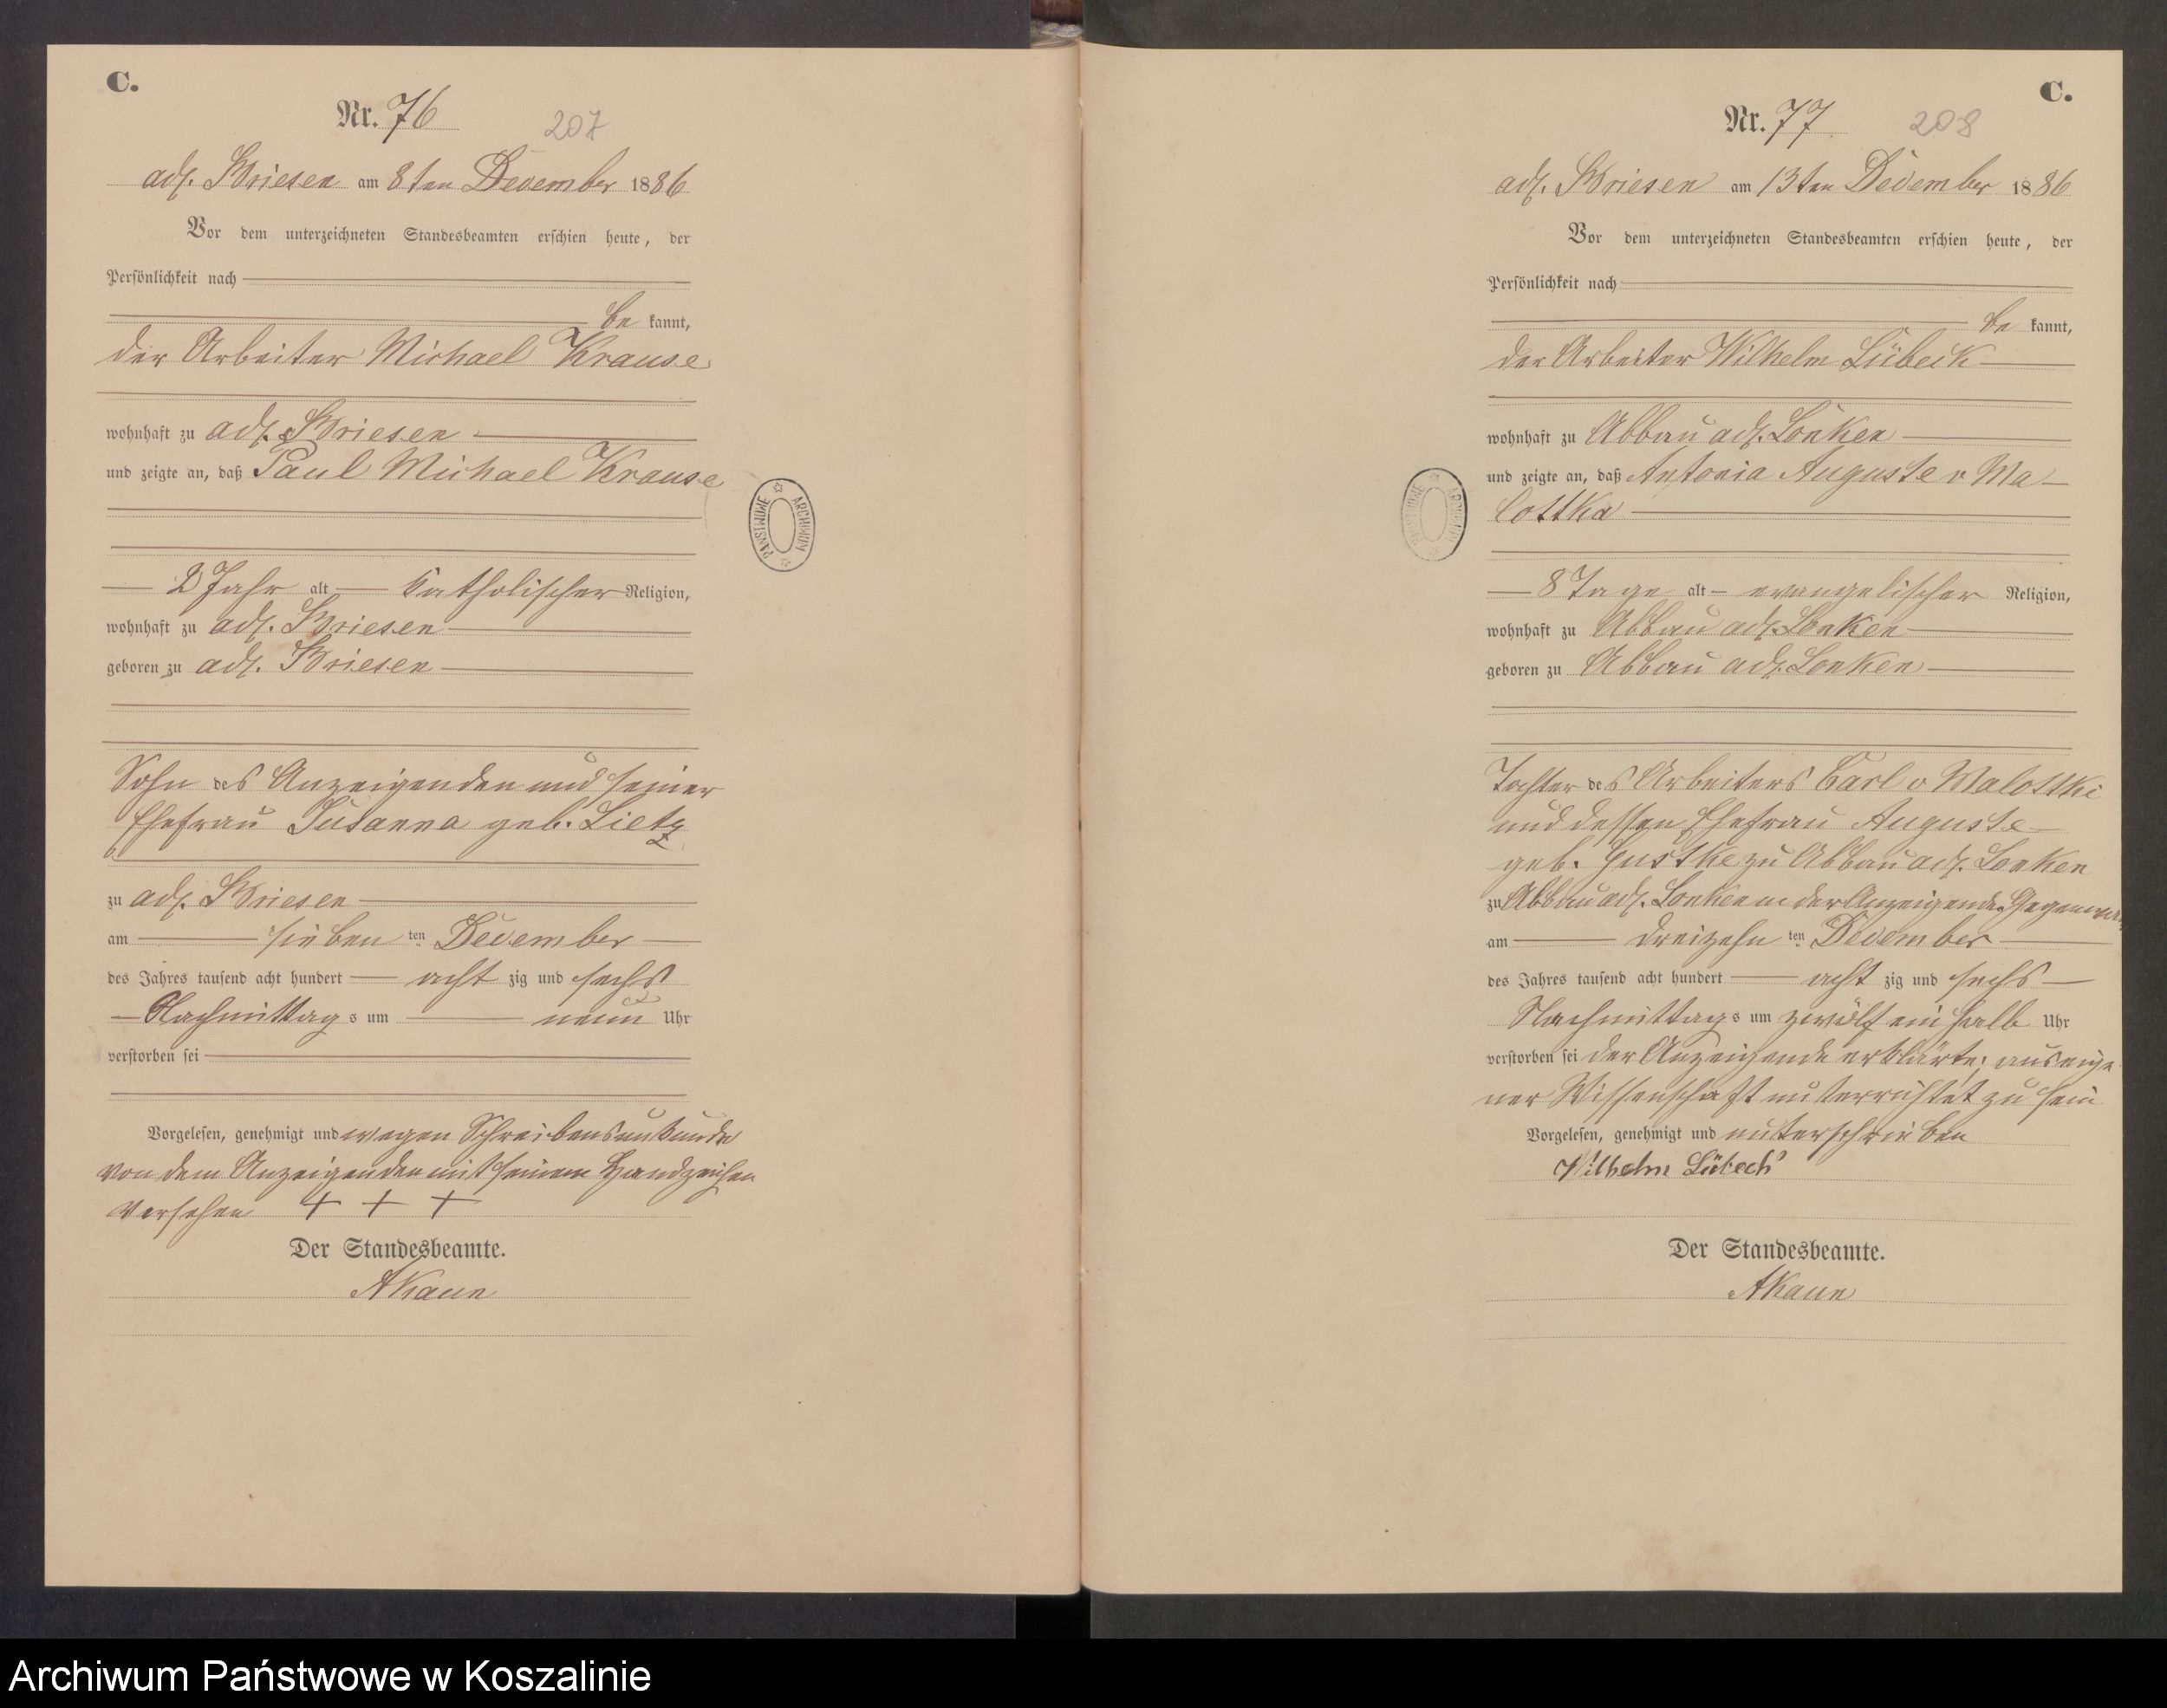 C.
Nr. 76
207
adl. Briesen am 8ten December 1886
Vor dem unterzeichneten Standesbeamten erschien heute, der
Persönlichkeit nach
be kannt,
der Arbeiter Michael Krause
wohnhaft zu adl. Briesen
und zeigte an, daß Paul Michael Krause
2 Jahr alt katholischer Religion,
wohnhaft zu adl. Briesen
geboren zu adl. Briesen
Sohn des Anzeigenden und seiner
Ehefrau Susanna geb. Lietz
zu adl. Briesen
am sieben ten December
des Jahres tausend acht hundert acht zig und sechs
Nachmittags um neun Uhr
verstorben sei
Vorgelesen, genehmigt und wegen Schreibensunkunde
von dem Anzeigenden mit seinem Handzeichen
versehen + + +
Der Standesbeamte.
AKaun
PAŃSTWOWE ARCHIWUM
C.
Nr. 77
208
adl. Briesen am 13ten December 1886
Vor dem unterzeichneten Standesbeamten erschien heute, der
Persönlichkeit nach
be kannt,
der Arbeiter Wilhelm Lübeck
wohnhaft zu Abbau adl. Lonken
und zeigte an, daß Antonia Auguste v Ma-
lottka
8 Tage alt evangelischer Religion,
wohnhaft zu Abbau adl. Lonken
geboren zu Abbau adl. Lonken
Tochter des Arbeiters Carl v Malottki
und dessen Ehefrau Auguste
geb. Justke zu Abbau adl. Lonken
zu Abbau adl. Lonken in der Anzeigenden Gegenwart
am dreizehn ten December
des Jahres tausend acht hundert acht zig und sechs
Nachmittags um zwölf ein halb Uhr
verstorben sei der Anzeigende erklärte; aus eige
ner Wissenschaft unterrichtet zu sein
Vorgelesen, genehmigt und unterschrieben
Wilhelm Lübeck
Der Standesbeamte.
AKaun
PAŃSTWOWE ARCHIWUM
Archiwum Państwowe w Koszalinie